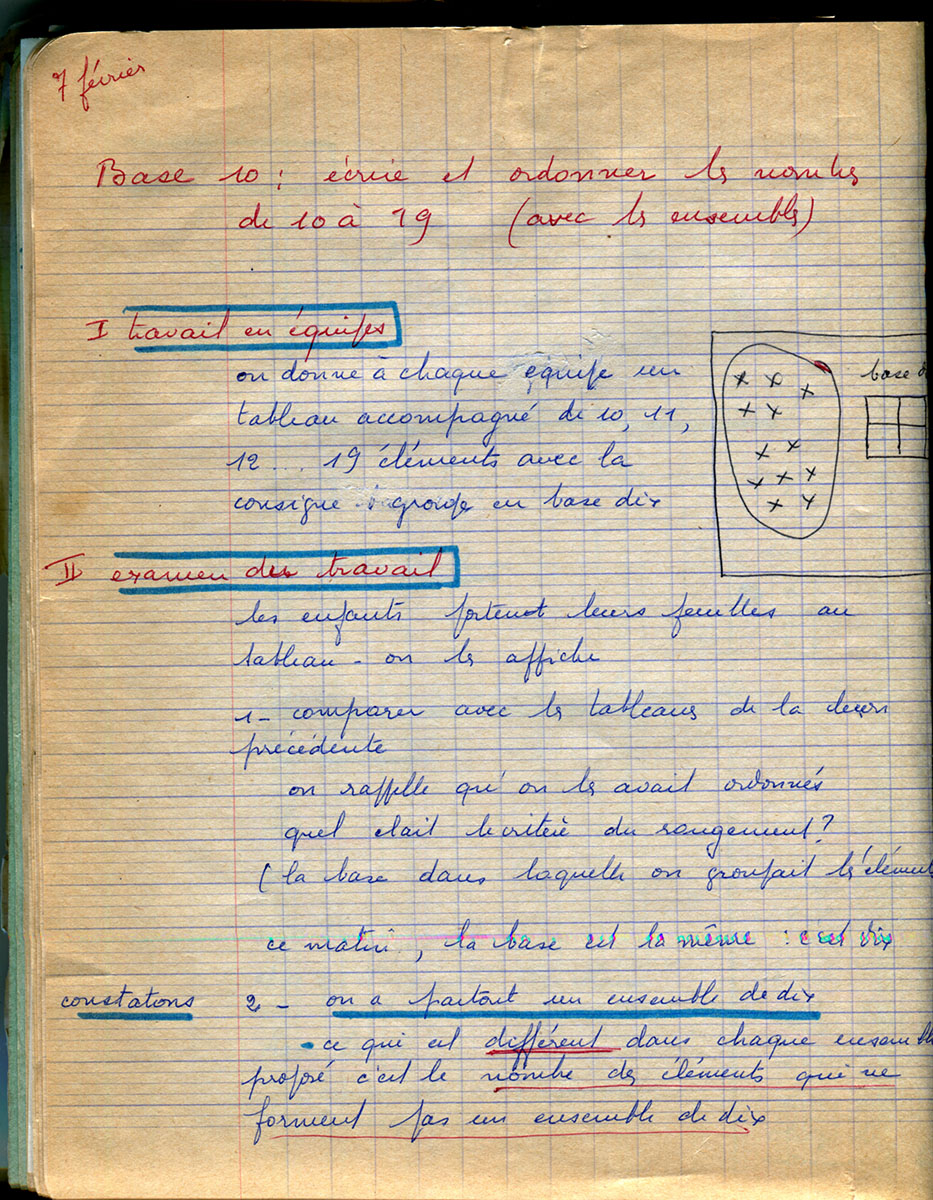 7 février
Base 10 : écrire et ordonner les nombres
de 10 à 19 (avec les ensembles)
I travail en équipes
on donne à chaque équipe un
tableau accompagné de 10, 11,
12 ... 19 éléments avec la
consigne groupe en base dix
base
II examen du travail
les enfants portent leurs feuilles au
tableau - on les affiche
1 - comparer avec les tableaux de la leçon
précédente
on rappelle qu'on les avait ordonnés
quel était le critère du rangement ?
(la base dans laquelle on groupait les élément
ce matin, la base est la même : c'est dix
constatons 2 - on a partout un ensemble de dix
- ce qui est différent dans chaque ensembl
proposé c'est le nombre des éléments qui ne
forment pas un ensemble de dix